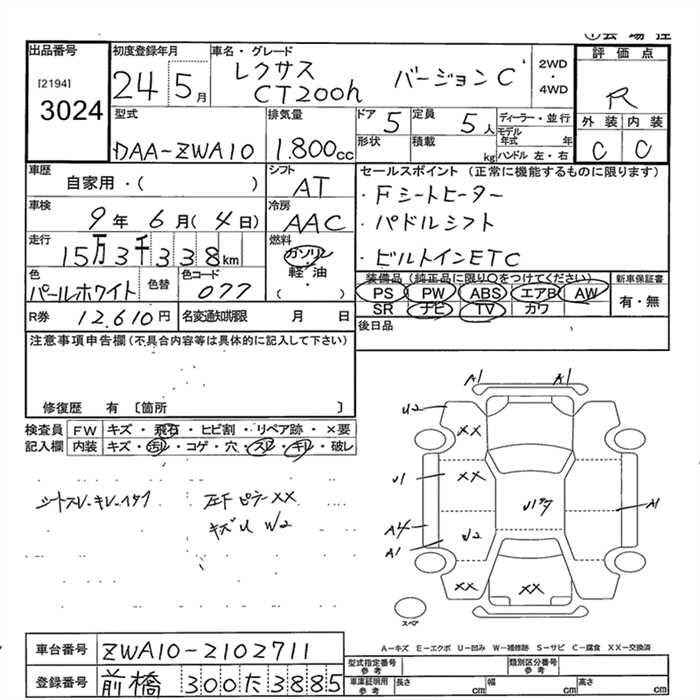 出品番号
[2194]
3024
初度登録年月
24 5月
車名・グレード
レクサス
CT200h バージョンC
2WD
・
4WD
評価点
R
外装 内装
C C
型式
DAA-ZWA10
排気量
1.800cc
ドア 5
定員 5人
形状
積載 kg
ディーラー・並行
モデル年式 年
ハンドル 左・右
車歴
自家用・( )
シフト
AT
セールスポイント (正常に機能するものに限ります)
・Fシートヒーター
・パドルシフト
・ビルトインETC
車検
9年 6月 (4日)
冷房
AAC
走行
15万3千338km
燃料
ガソリン
軽油
( ・ )
色
パールホワイト
色替
色コード
077
装備品 (純正品に限り○をつけてください)
PS PW ABS エアB AW
SR ナビ TV カワ
新車保証書
有・無
R券 12.610円
名変通知期限 月 日
後日品
注意事項申告欄 (不具合内容等は具体的に記入して下さい)
修復歴 有 〔箇所 〕
検査員 FW キズ・飛石・ヒビ割・リペア跡・×要
記入欄 内装 キズ・汚レ・コゲ・穴・スレ・キレ・破レ
左F ピラーXX
キズU W2
A1 A1
U2
XX
XX
U1
A1
A4
A1
W2
XX
XX
スペア
A-キズ E-エクボ U-凹み W-補修跡 S-サビ C-腐食 XX-交換済
車台番号 ZWA10-2102711
登録番号 前橋 300た3885
型式指定番号
参考
類別区分番号
参考
車庫証明用
参考
長さ cm 幅 cm 高さ cm